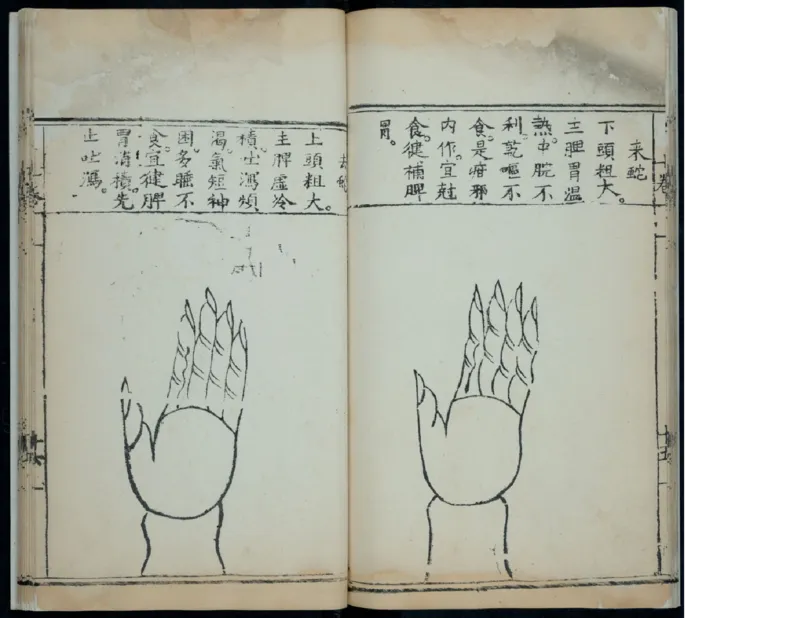 来蛇
下頭粗大。
主脾胃温
熱。中脘不
利。乾嘔不
食。是疳邪
内作。宜尅
食。健補脾
胃。
去蛇
上頭粗大。
主脾虚冷
積。吐瀉煩
渴。氣短神
困。多睡不
食。宜健脾
胃。消積。先
止吐瀉。